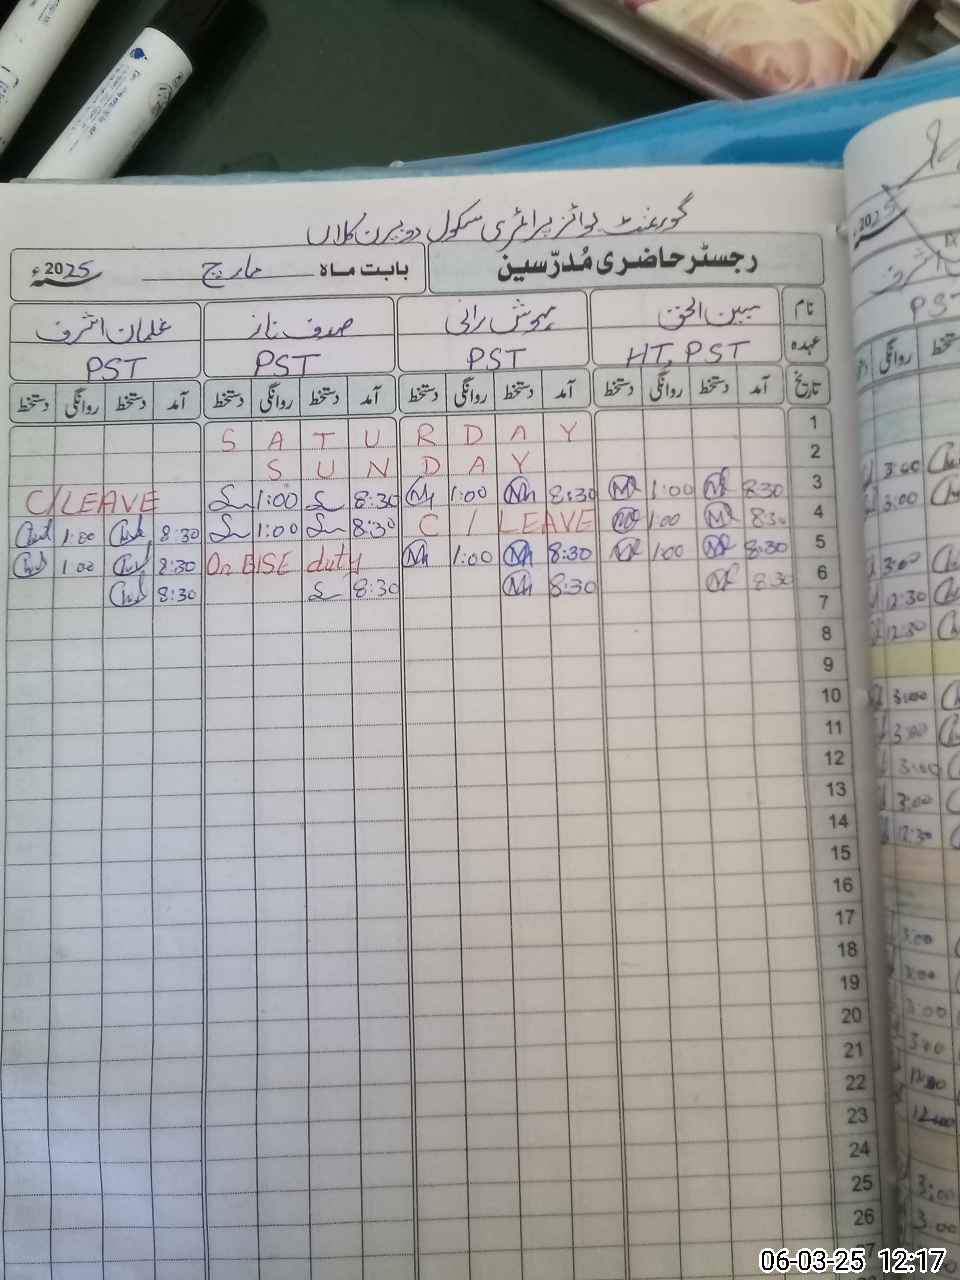 گورنمنٹ بوائز پرائمری سکول دوبیرن کلاں
رجسٹر حاضری مُدرّسین
بابت ماہ مارچ 2025ء
نام مبین الحق مہوش رانی صدف ناز غلمان اشرف
عہدہ HT, PST PST PST PST
تاریخ آمد دستخط روانگی دستخط آمد دستخط روانگی دستخط آمد دستخط روانگی دستخط آمد دستخط روانگی دستخط
1 SATURDAY
2 SUNDAY
3 8:30 1:00 8:30 1:00 8:30 1:00 C/LEAVE
4 8:30 1:00 C/LEAVE 8:30 1:00 8:30 1:00
5 8:30 1:00 8:30 1:00 On BISE duty 8:30 1:00
6 8:30 8:30 8:30 8:30
7
8
9
10
11
12
13
14
15
16
17
18
19
20
21
22
23
24
25
26
27
2025
PST
روانگی
3:00
3:00
3:00
12:30
12:30
3:00
3:00
3:00
3:00
12:30
3:00
3:00
3:00
3:00
3:00
3:00
06-03-25 12:17